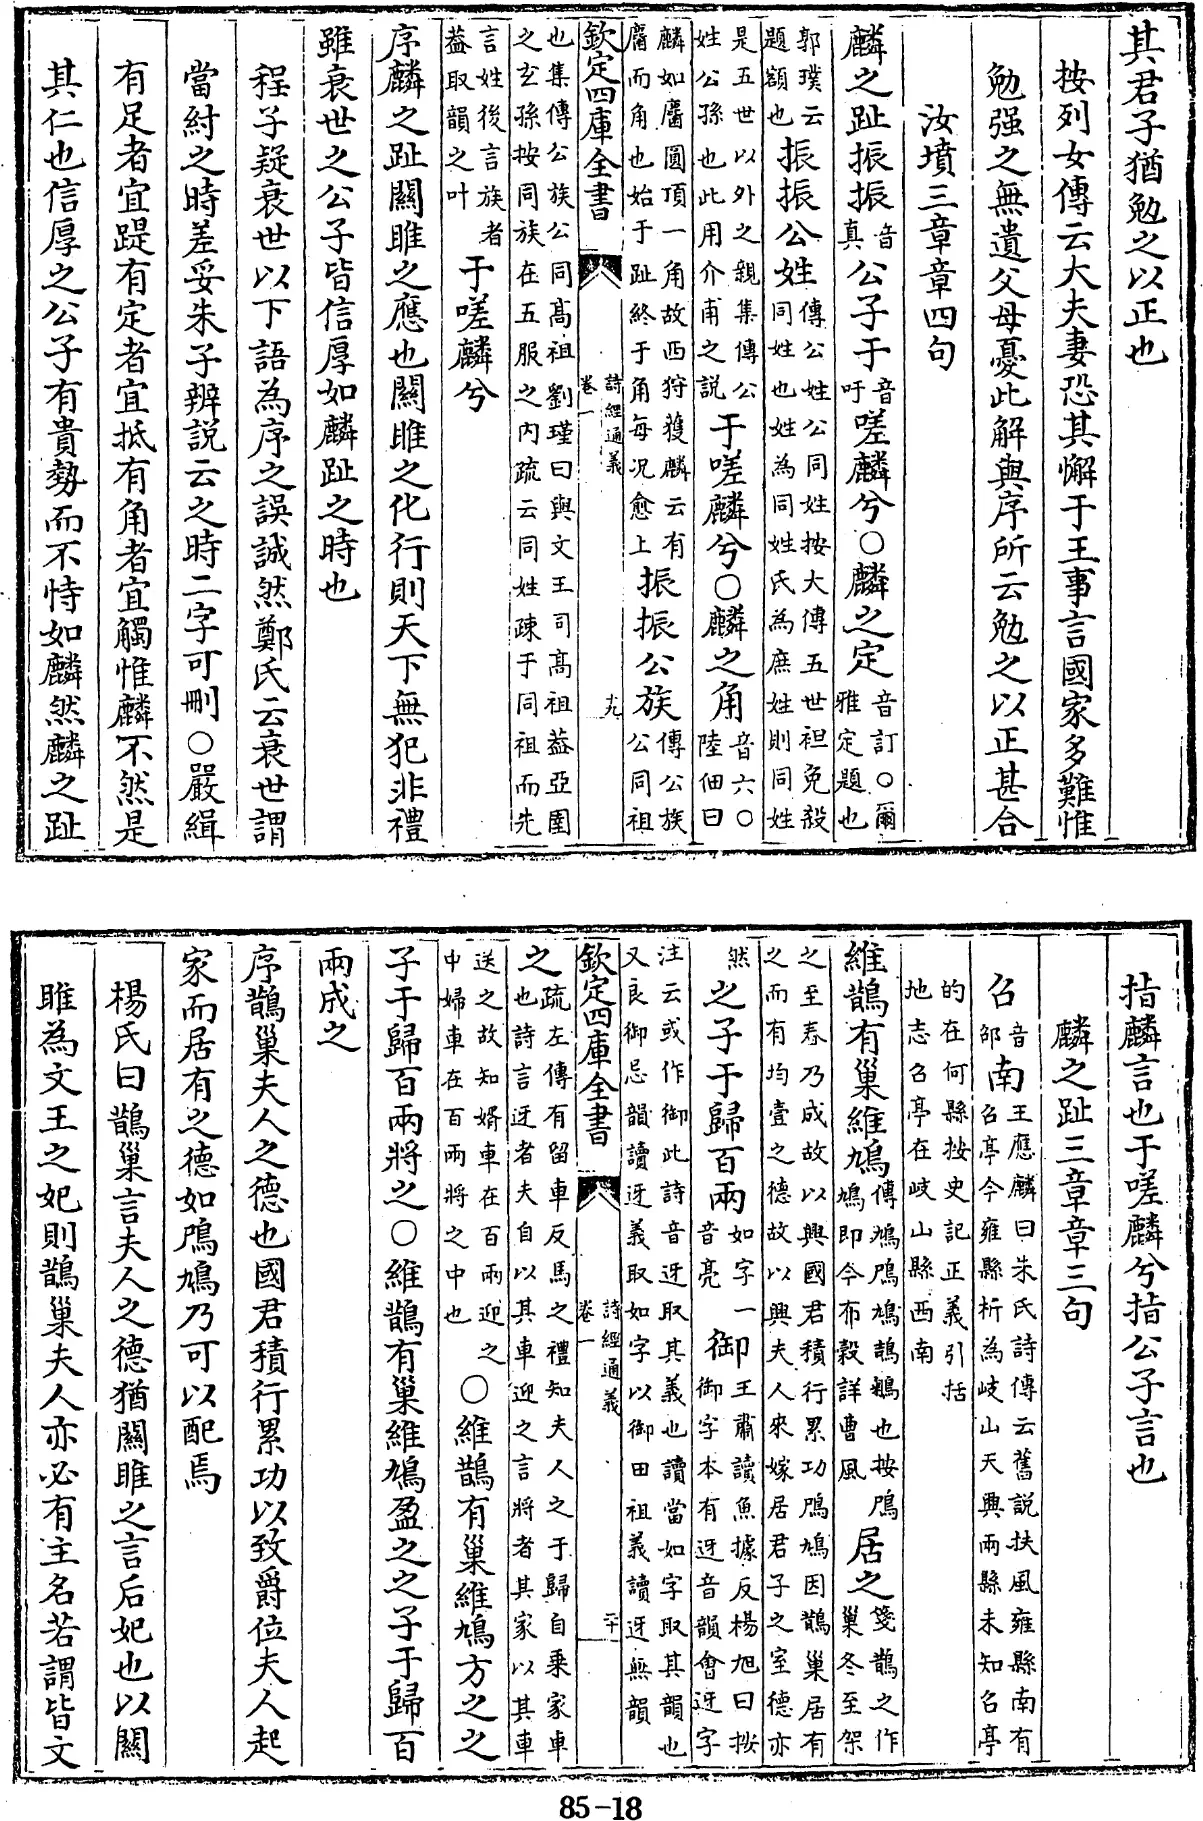 其君子猶勉之以正也
按列女傳云大夫妻恐其懈于王事言國家多難惟
勉强之無遺父母憂此解與序所云勉之以正甚合
汝墳三章章四句
麟之趾振振音真公子于音吁嗟麟兮○麟之定音訂○爾雅定題也
郭璞云題額也振振公姓傳公姓公同姓按大傳五世袒免殺同姓也姓為同姓氏為庶姓則同姓
是五世以外之親集傳公姓公孫也此用介甫之說于嗟麟兮○麟之角音六○陸佃曰
麟如麕圓頂一角故西狩獲麟云有麕而角也始于趾終于角每况愈上振振公族傳公族公同祖
欽定四庫全書 詩經通義 卷一 十九
也集傳公族公同高祖劉瑾曰與文王司高祖葢亞圉之玄孫按同族在五服之內疏云同姓疎于同祖而先
言姓後言族者葢取韻之叶于嗟麟兮
序麟之趾關雎之應也關雎之化行則天下無犯非禮
雖衰世之公子皆信厚如麟趾之時也
程子疑衰世以下語為序之誤誠然鄭氏云衰世謂
當紂之時差妥朱子辨説云之時二字可刪○嚴緝
有足者宜踶有定者宜抵有角者宜觸惟麟不然是
其仁也信厚之公子有貴勢而不恃如麟然麟之趾
指麟言也于嗟麟兮指公子言也
麟之趾三章章三句
召音邵南王應麟曰朱氏詩傳云舊説扶風雍縣南有召亭今雍縣析為岐山天興兩縣未知召亭
的在何縣按史記正義引括地志召亭在岐山縣西南
維鵲有巢維鳩傳鳩鳲鳩鵠鵴也按鳲鳩即今布穀詳曹風居之箋鵲之作巢冬至架
之至春乃成故以興國君積行累功鳲鳩因鵲巢居有之而有均壹之德故以興夫人來嫁居君子之室德亦
然之子于歸百兩如字一音亮御王肅讀魚據反楊旭曰按御字本有迓音韻會迓字
注云或作御此詩音迓取其義也讀當如字取其韻也又良御忌韻讀迓義取如字以御田祖義讀迓無韻
欽定四庫全書 詩經通義 卷一 二十
之疏左傳有留車反馬之禮知夫人之于歸自乗家車也詩言迓者夫自以其車迎之言將者其家以其車
送之故知婿車在百兩迎之中婦車在百兩將之中也○維鵲有巢維鳩方之之
子于歸百兩將之○維鵲有巢維鳩盈之之子于歸百
兩成之
序鵲巢夫人之德也國君積行累功以致爵位夫人起
家而居有之德如鳲鳩乃可以配焉
楊氏曰鵲巢言夫人之德猶關雎之言后妃也以關
雎為文王之妃則鵲巢夫人亦必有主名若謂皆文
85-18